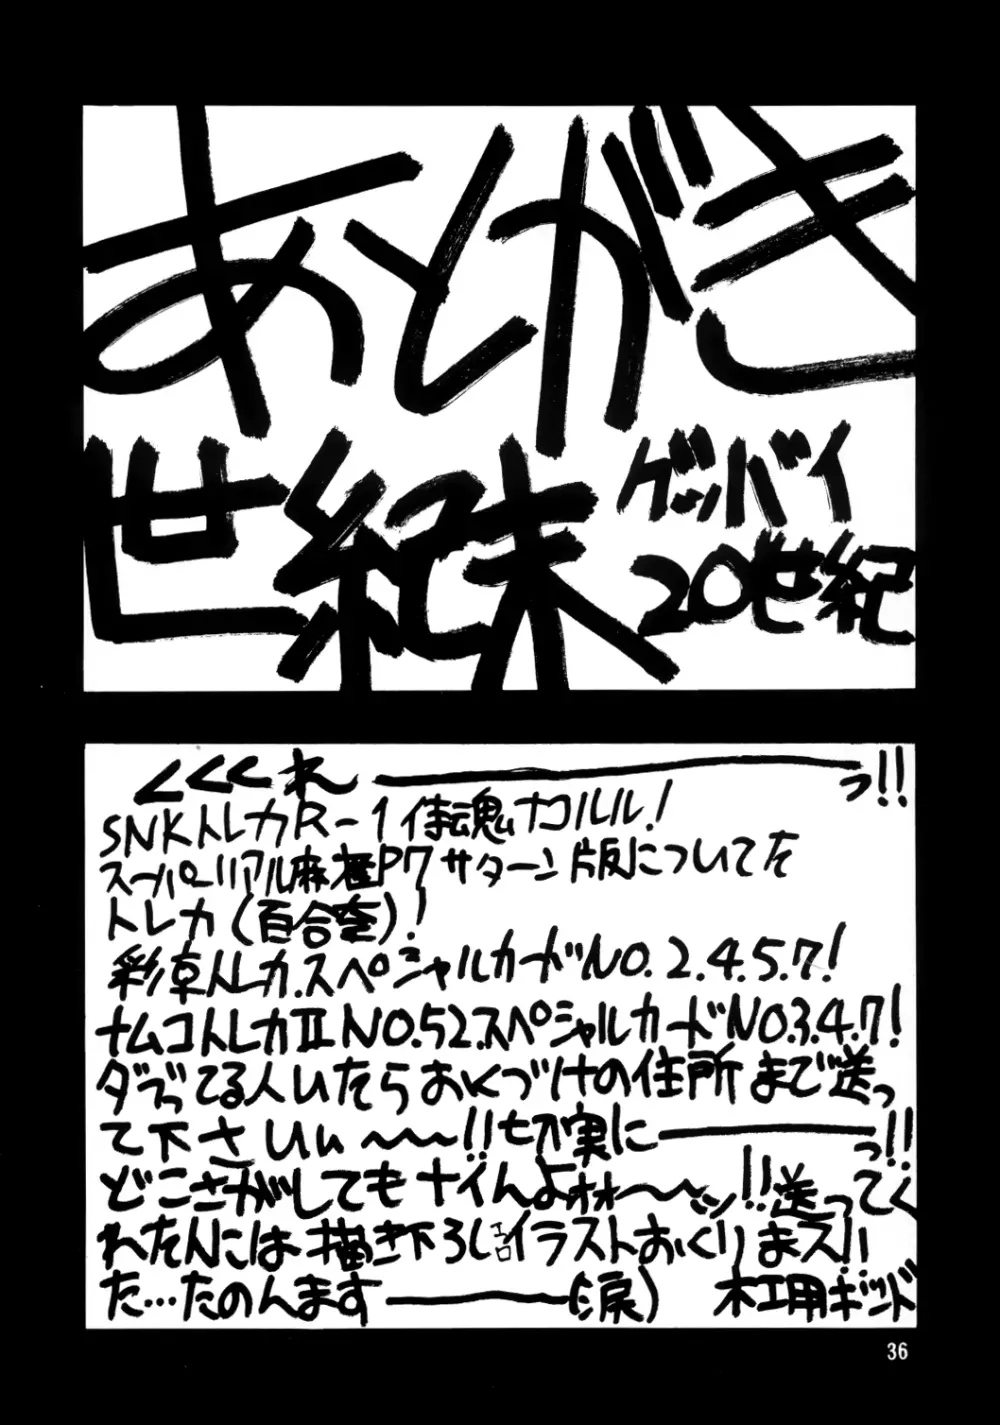 あとがき
世紀末
グッバイ
20世紀
くくくれ―――っ!!
SNKトレカR-1侍魂ナコルル!
スーパーリアル麻雀P7サターン版についてた
トレカ(百合奈)!
彩京トレカ.スペシャルカードNO.2.4.5.7!
ナムコトレカII NO.52.スペシャルカードNO3.4.7!
ダブってる人いたらおくづけの住所まで送っ
て下さいぃ〜〜〜!!切実に―――っ!!
どこさがしてもナイんよォォ〜〜ッ!!送ってく
れたんには描き下ろしエロイラストおくりまス!!
た…たのんます―――(涙) 木工用ボンド
36